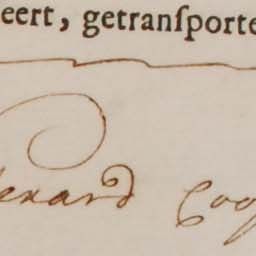 eert, getranſporte
enard Coo